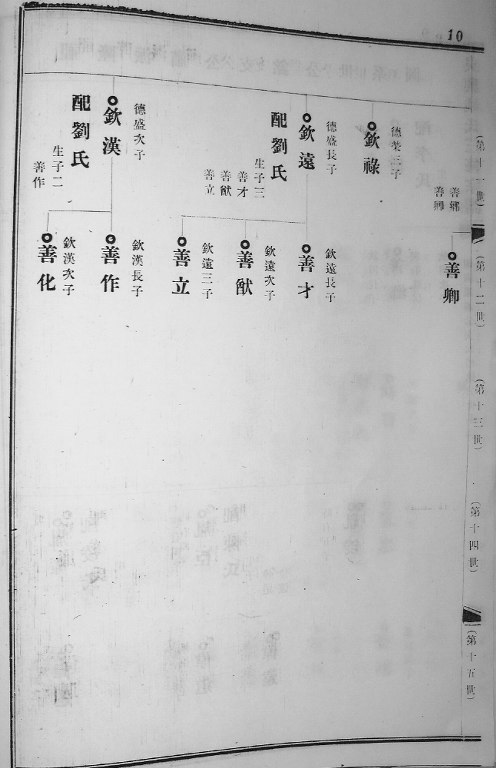 10
(第十一世)
(第十二世)
(第十三世)
(第十四世)
(第十五世)
善卿
欽祿
德榮三子
欽遠
德盛長子
配劉氏
生子三
善才
善猷
善立
欽漢
德盛次子
配劉氏
生子二
善作
善卿
善才
欽遠長子
善猷
欽遠次子
善立
欽遠三子
善作
欽漢長子
善化
欽漢次子